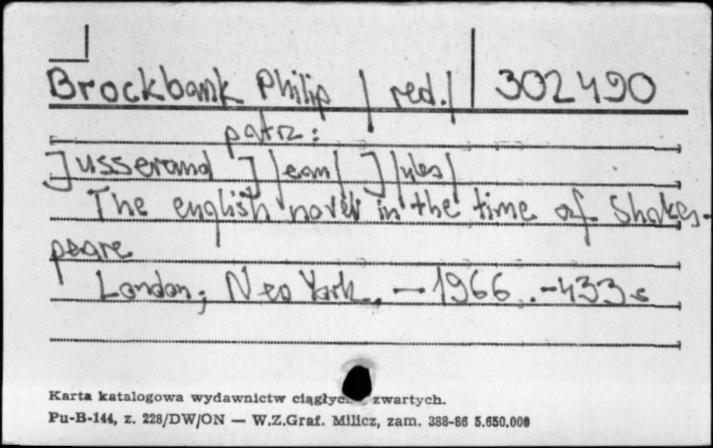 Brockbank Philip /red./ 302490
patrz:
Jusserand J/ean/ J/ules/
The english novel in the time of Shakes-
peare
London, Neo York, - 1966. - 433 s
Karta katalogowa wydawnictw ciągłych zwartych.
Pu-B-144, z. 228/DW/ON — W.Z.Graf. Milicz, zam. 388-86 5.650.000